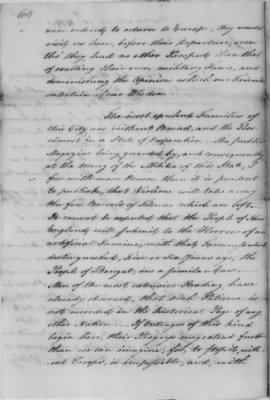 60
were ordered to return to Europe, they would
visit us here, before their Departure, even
tho they had no other Prospect than that
of exalting their own military Fame, and
diminishing the Opinion which our Friends
entertain of our Wisdom.
The most opulent Families of
this City are without Bread, and the Poor
almost in a State of Desperation. The public
Magazine being guarded by, and consequently
at the mercy of the Militia of this State, it
is far with more Reason than it is prudent
to publish, that Violence will take away
the few Barrels of Flour which are left.
It cannot be expected that the People of New
England will submit to the Horrors of an
artificial Famine, with that Tameness which
distinguished, Five or Six Years ago, the
People of Bengal, in a similar Case.
Men of the most extensive Reading have
already observed, that such Patience is
not recorded in the historical Page of any
other Nation. If Outrages of this kind
begin here, their Progress may extend further
than we can imagine; for, to stop it, with-
out Troops, is impossible, and, with